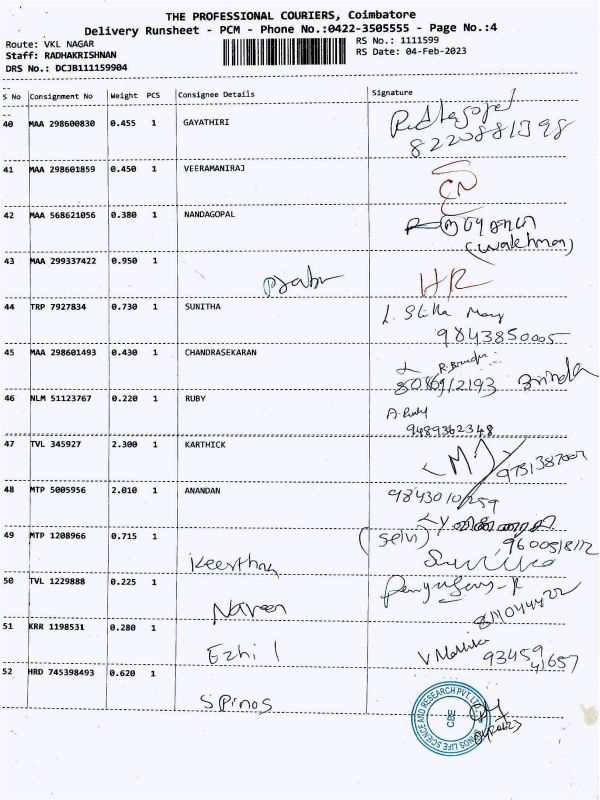 THE PROFESSIONAL COURIERS, Coimbatore
Delivery Runsheet - PCM - Phone No.:0422-3505555 - Page No.:4
Route: VKL NAGAR
Staff: RADHAKRISHNAN
DRS No.: DCJB111159904
RS No.: 1111599
RS Date: 04-Feb-2023
S No Consignment No Weight PCS Consignee Details Signature
40 MAA 298600830 0.455 1 GAYATHIRI
8220881398
41 MAA 298601859 0.450 1 VEERAMANIRAJ
42 MAA 568621056 0.380 1 NANDAGOPAL
43 MAA 299337422 0.950 1 HR
44 TRP 7927834 0.730 1 SUNITHA
9843850005
45 MAA 298601493 0.430 1 CHANDRASEKARAN
Brinda
46 NLM 51123767 0.220 1 RUBY A. Ruby
9489362348
47 TVL 345927 2.300 1 KARTHICK
9751387007
48 MTP 5005956 2.010 1 ANANDAN 9843010259
49 MTP 1208966 0.715 1 (Selvi)
Keerthy
50 TVL 1229888 0.225 1
Naveen
51 KRR 1198531 0.280 1 V Mallika
Ezhil 93459 41657
52 HRD 745398493 0.620 1
Spinos
SPINOS LIFE SCIENCE AND RESEARCH PVT. LTD.
CBE